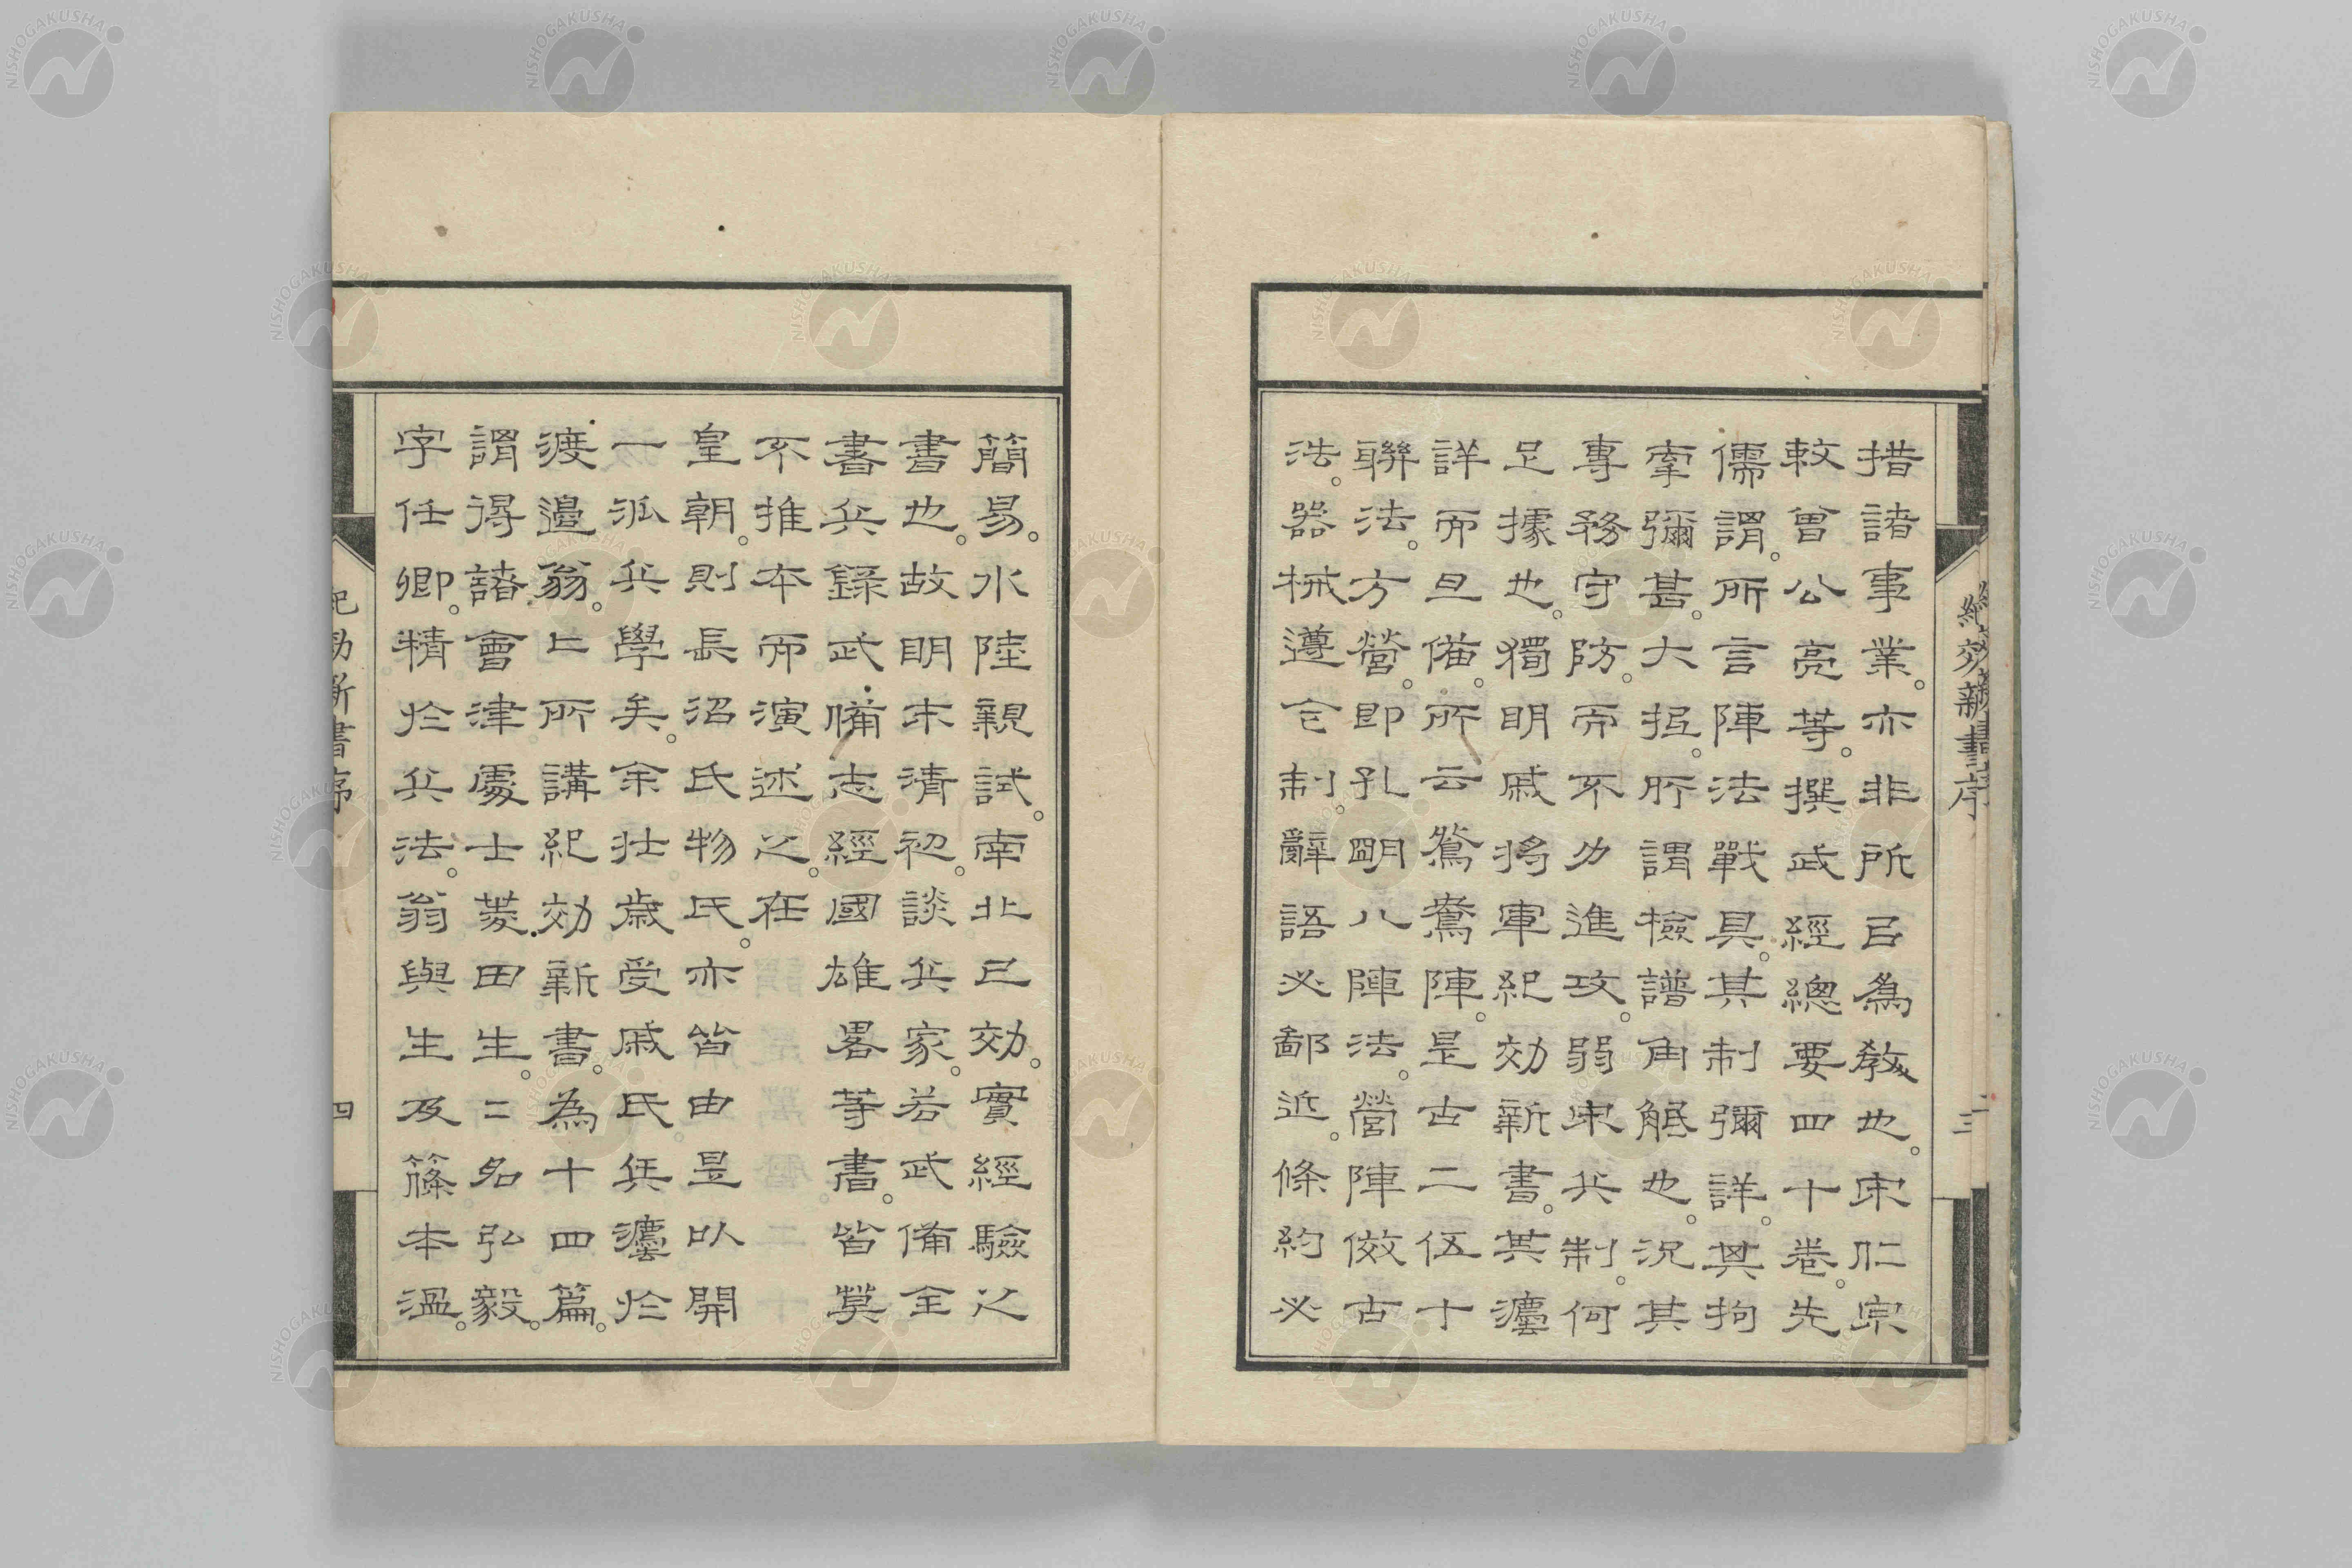 措諸事業。亦非所㠯爲教也。宋仁宗
較曾公亮等。撰武經總要四十卷。先
儒謂。所言陣法戰具。其制彌詳。其拘
牽彌甚。大抵。所謂檢譜角觝也。況其
專務守防。而不力進攻。弱宋兵制。何
足據也。獨明戚將軍紀効新書。其灋
詳而且備。所云鴛鴦陣。是古二伍十
聯法。方營。即孔明八陣法。營陣倣古
法。器械遵仝制。辭語必鄙近。條約必
紀効新書序
三
簡易。水陸親試。南北已効。實經驗之
書也。故明末清初。談兵家。若武備全
書兵錄武備志經國雄畧等書。皆莫
不推本而演述之。在
皇朝。則長沼氏物氏。亦皆由是以開
一派兵學矣。余壮歳受戚氏兵灋於
渡邉翁。上所講紀効新書。為十四篇。
謂得諸會津處士菱田生。二名弘毅。
字任卿。精於兵法。翁與生及篠本溫。
紀効新書序
四
NISHOGAKUSHA